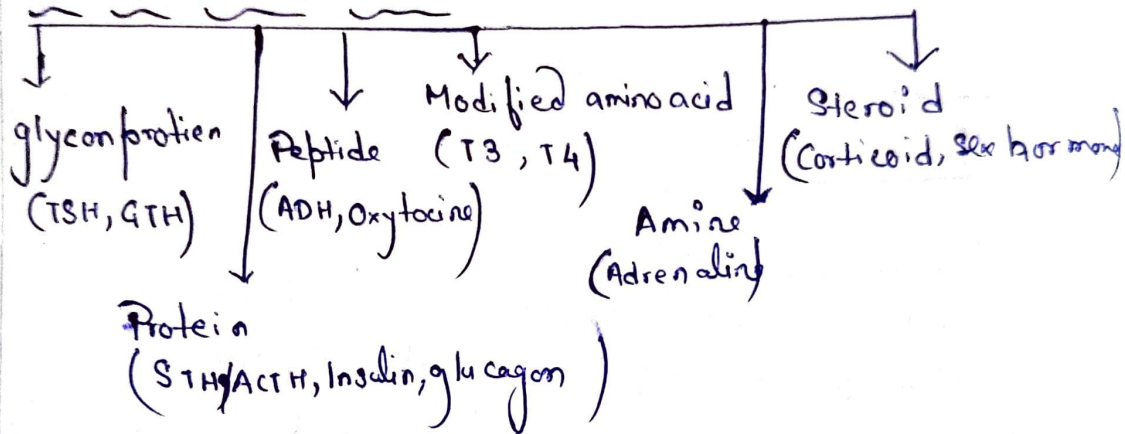 glyconprotien
(TSH, GTH)
Protein
(STH/ACTH, Insulin, glucagon)
Peptide
(ADH, Oxytocine)
Modified aminoacid
(T3, T4)
Amine
(Adrenaline)
Steroid
(Corticoid, sex hormone)